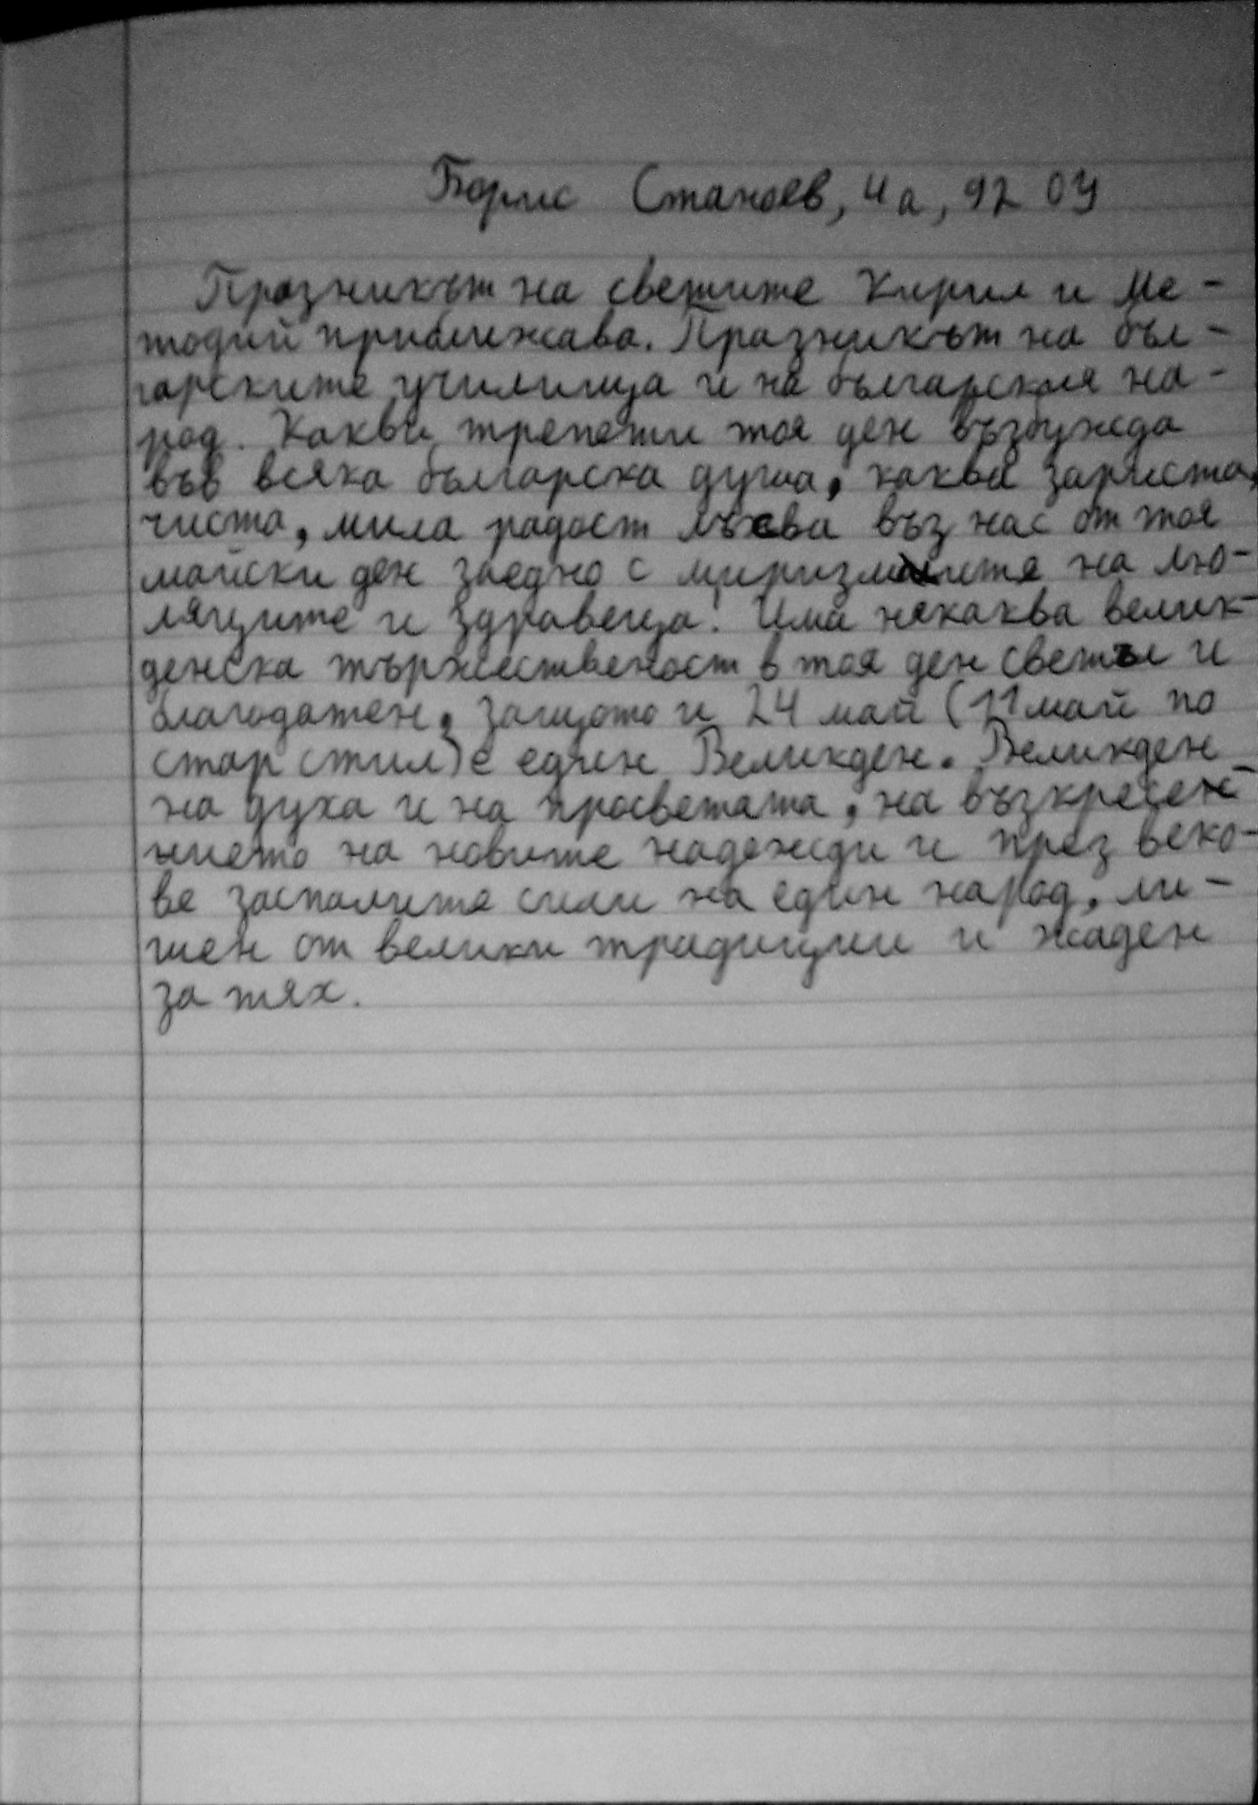 Борис Станоев, 4а, 92 ОУ
Празникът на светите Кирил и Ме-
тодий приближава. Празникът на бъл-
гарските училища и на българския на-
род. Какви трепети тоя ден възбужда
във всяка българска душа, каква зариста,
чиста, мила радост лъсва въз нас от тоя
майски ден заедно с миризмите на лю-
ляците и здравеца! Има някаква велик-
денска тържественост в тоя ден светъл и
благодатен, защото и 24 май (11 май по
стар стил) е един Великден. Великден
на духа и на просветата, на възкресен-
нието на новите надежди и през веко-
ве заспалите сили на един народ, ли-
шен от велики традиции и жаден
за тях.